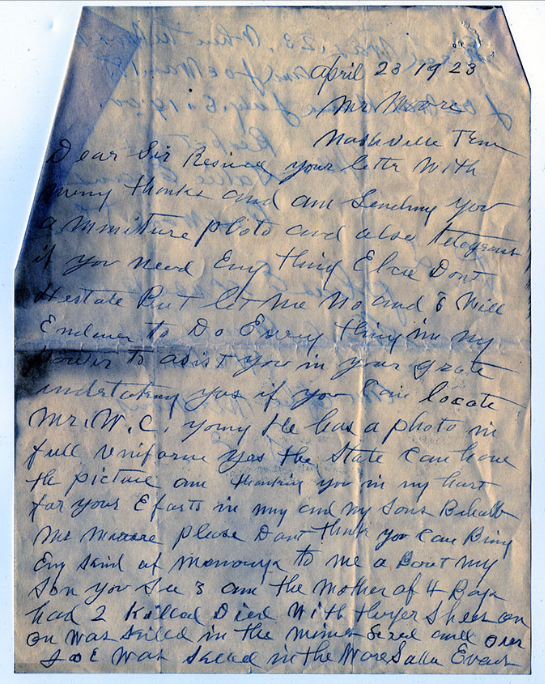 April 23 1923
Mr Moore
Nashville Tenn
Dear Sir Resived your letter With
meny thanks and am Sending you
a miniture photo and also telegram
if you need Eny thing Elsie Dont
Hestate But let me No and I Will
Endever to Do Every thing in my
Power to asist you in your grate
undertaking yas if you Can locate
Mr. W. C. young He has a photo in
full Uniform yes the State Can have
the picture am thanking you in my hart
for your Efarts in my and my Sons Behalf
Mr Moore please Dont think you Can Bring
Eny kind of to me a Bout my
Son you See I am the Mother of 4 Boys
had 2 Killed Died With Shoes on
on Was killed in the mines and over
Joe Was killed in the Ware Sallie Evans